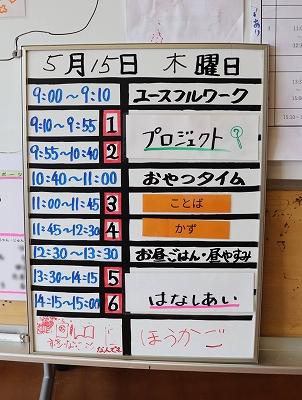 5月15日 木曜日
9:00〜9:10 ユースフルワーク
9:10〜9:55 1
プロジェクト?
9:55〜10:40 2
10:40〜11:00 おやつタイム
11:00〜11:45 3 ことば
11:45〜12:30 4 かず
12:30〜13:30 お昼ごはん・昼やすみ
13:30〜14:15 5
はなしあい
14:15〜15:00 6
ほうかご